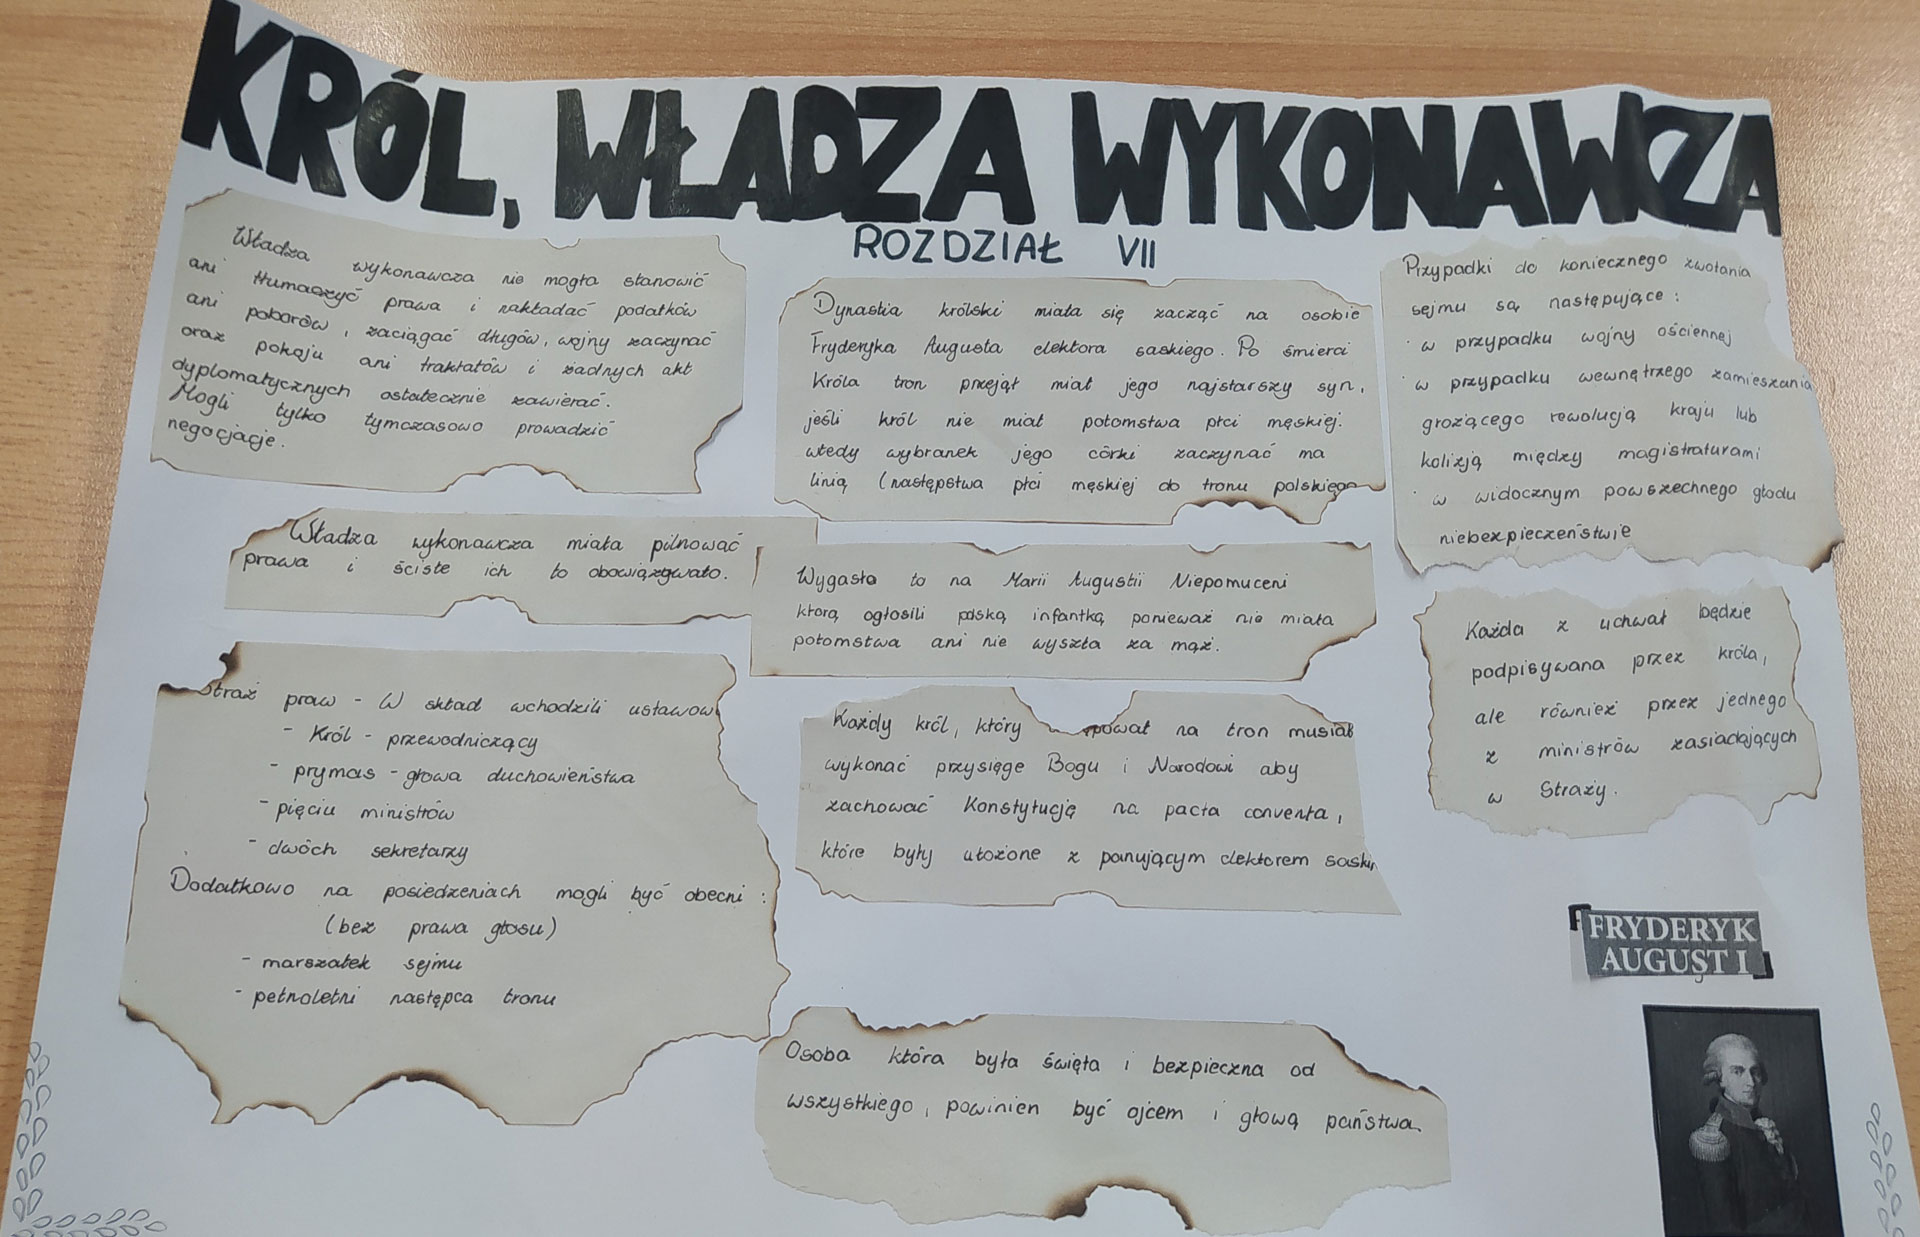 KRÓL, WŁADZA WYKONAWCZA
ROZDZIAŁ VII
Władza wykonawcza nie mogła stanowić
ani tłumaczyć prawa i nakładać podatków
ani poborów, zaciągać długów, wojny zaczynać
oraz pokoju ani traktatów i żadnych akt
dyplomatycznych ostatecznie zawierać.
Mogli tylko tymczasowo prowadzić
negocjacje.
Władza wykonawcza miała pilnować
prawa i ściśle ich to obowiązywało.
Straż praw - W skład wchodzili ustawow
- Król - przewodniczący
- prymas - głowa duchowieństwa
- pięciu ministrów
- dwóch sekretarzy
Dodatkowo na posiedzeniach mogli być obecni :
(bez prawa głosu)
- marszałek sejmu
- pełnoletni następca tronu
Dynastia królski miała się zacząć na osobie
Fryderyka Augusta elektora saskiego. Po śmierci
Króla tron przejął miał jego najstarszy syn,
jeśli król nie miał potomstwa płci męskiej.
wtedy wybranek jego córki zaczynać ma
linią (następstwa płci męskiej do tronu polskiego
Wygasło to na Marii Augustii Niepomuceni
którą ogłosili polską infantką ponieważ nie miała
potomstwa ani nie wyszła za mąż.
Każdy król, który pował na tron musiał
wykonać przysięge Bogu i Narodowi aby
zachować Konstytucją na pacta conventa,
które były ułożone z panującym elektorem saskim
Osoba która była święta i bezpieczna od
wszystkiego, powinien być ojcem i głową państwa.
Przypadki do koniecznego zwołania
sejmu są następujące :
· w przypadku wojny ościennej
· w przypadku wewnętrzego zamieszania
grożącego rewolucją kraju lub
kolizją między magistraturami
· w widocznym powszechnego głodu
niebezpieczeństwie
Każda z uchwał będzie
podpisywana przez króla,
ale również przez jednego
z ministrów zasiadających
w Straży.
FRYDERYK
AUGUST I